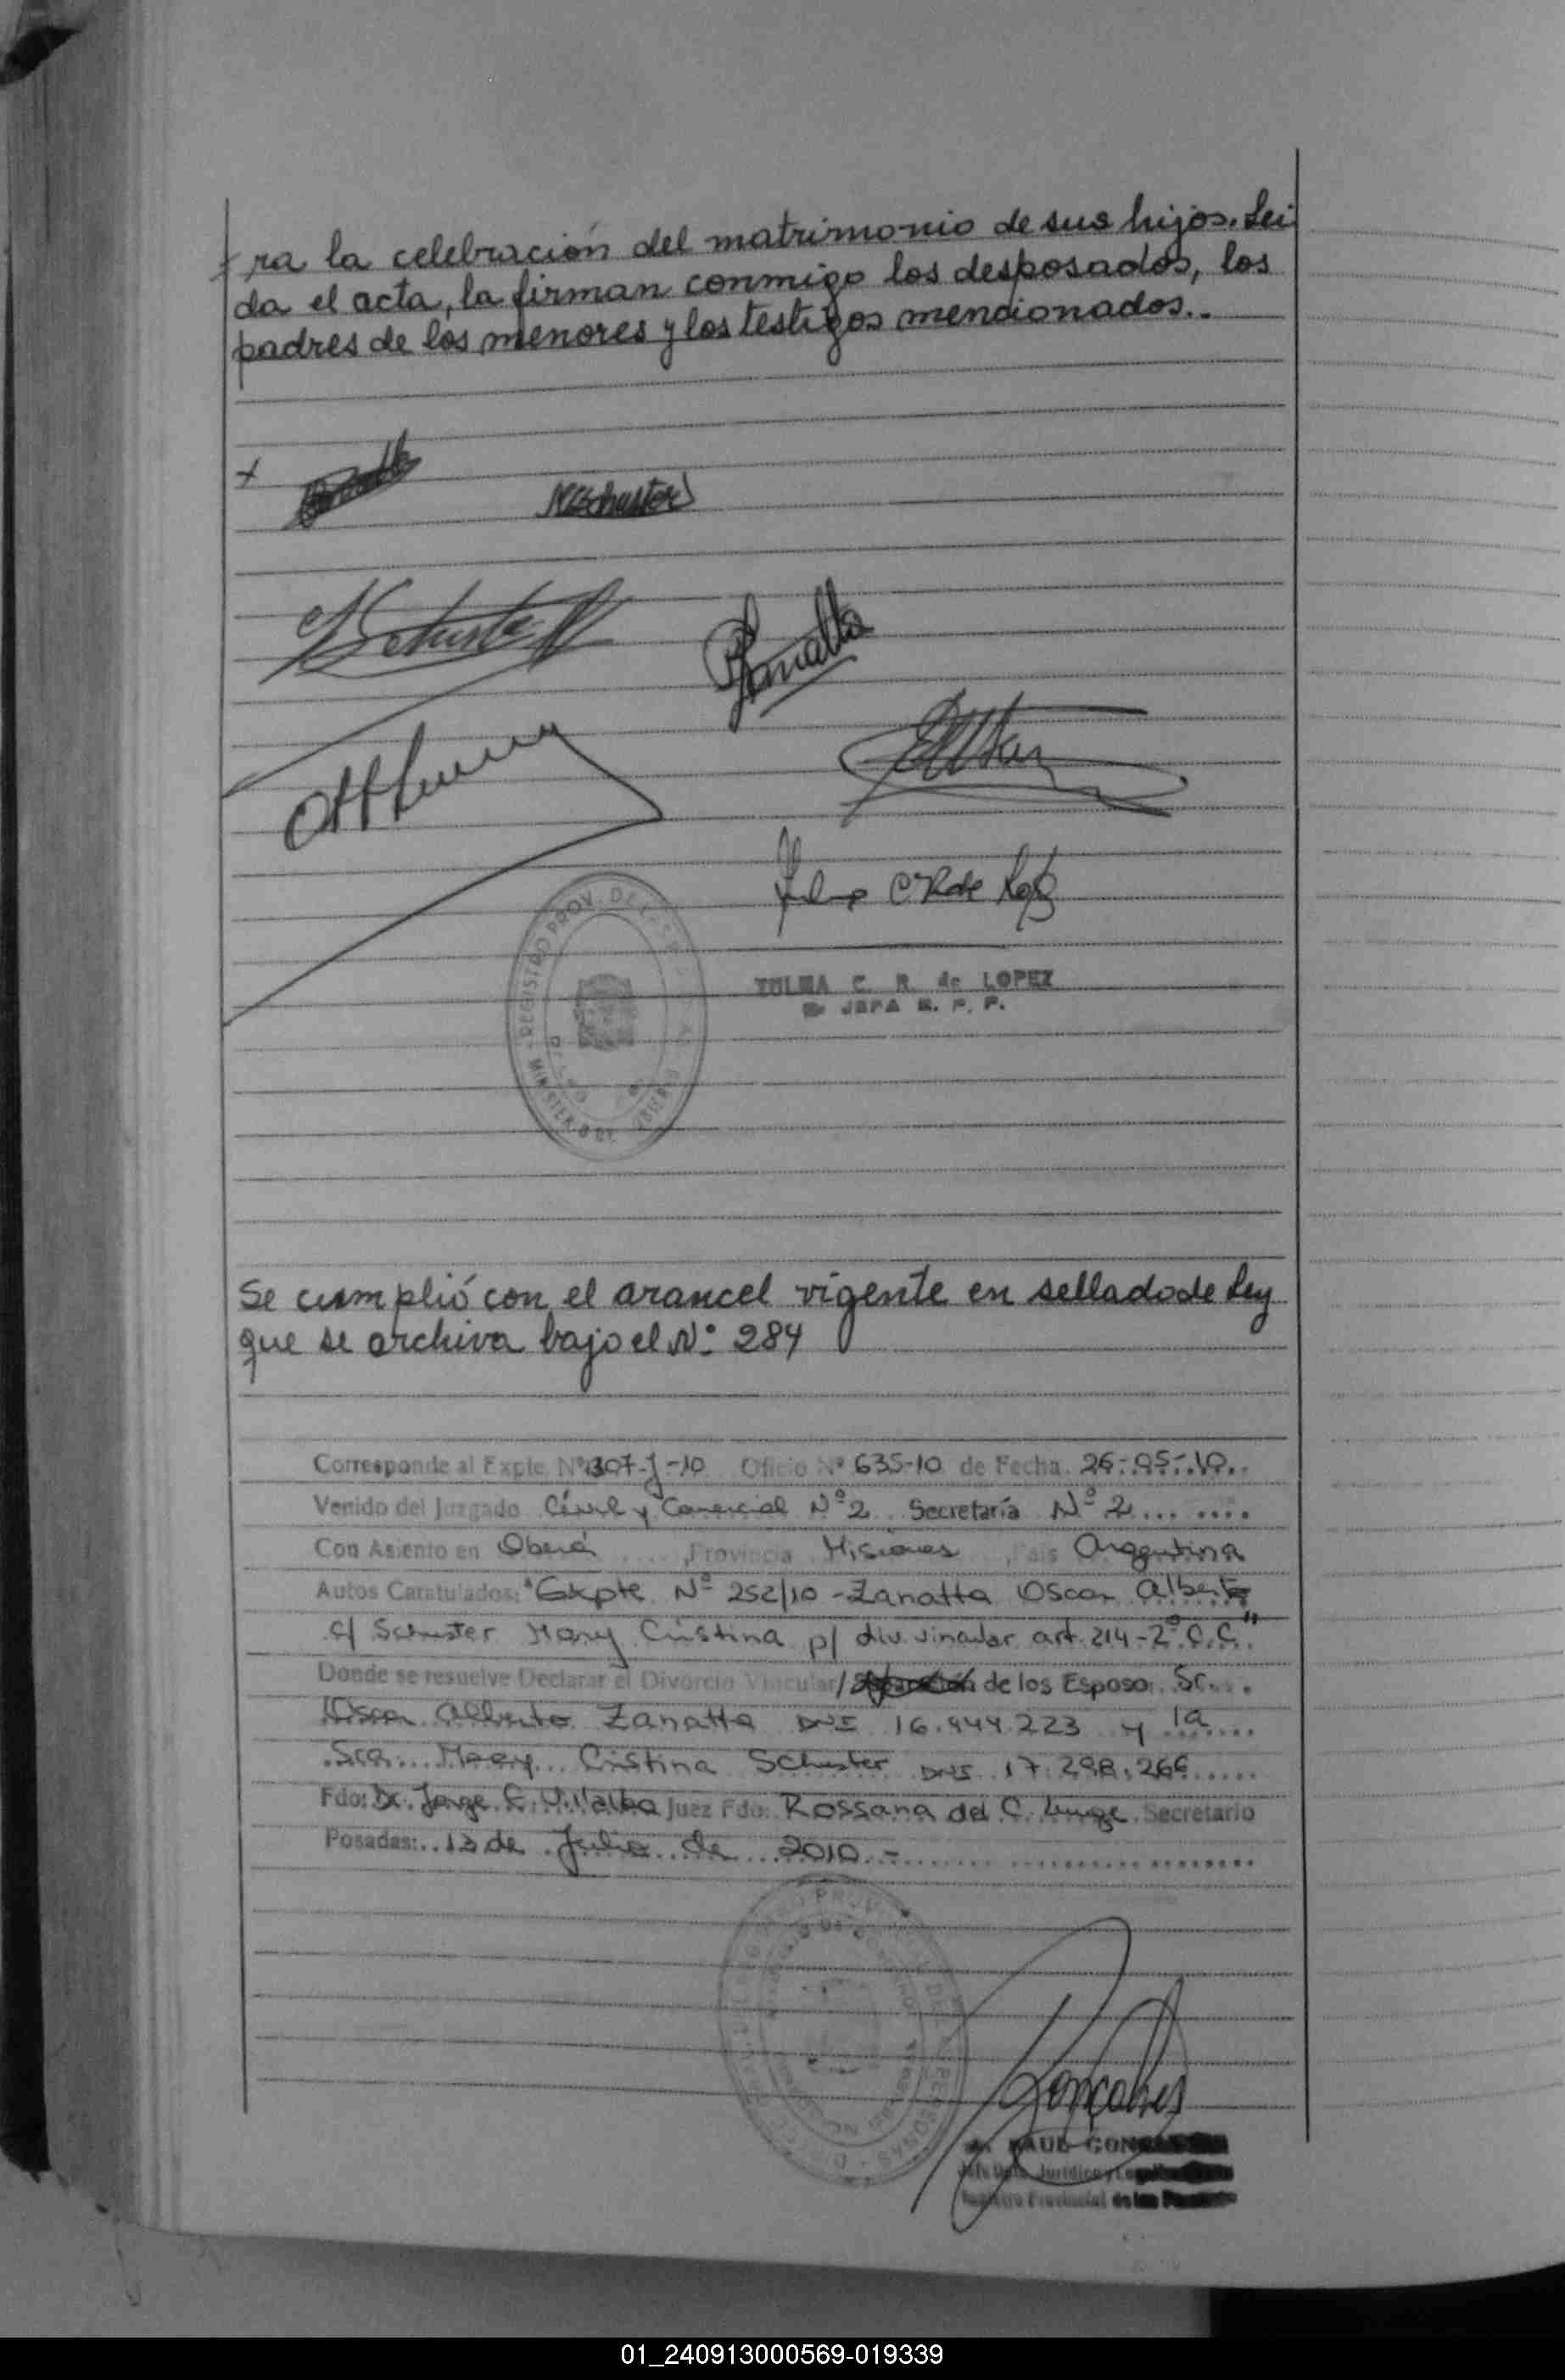 ra la celebración del matrimonio de sus hijos. Lei
da el acta, la firman conmigo los desposados, los
padres de los menores y los testigos mencionados..
Schuster
Schuster
Zanatta
REGISTRO PROV. DE LAS
MINISTERIO DE
ZULMA C. R. de LOPEZ
JEFA
Se cumplió con el arancel vigente en sellado de Ley
que se archiva bajo el Nº 284
Corresponde al Expte. Nº 1307-J-10 Oficio Nº 635-10 de Fecha 26-05-10.-
Venido del Juzgado Civil y Comercial Nº 2 Secretaría Nº 2
Con Asiento en Oberá, Provincia Misiones, País Argentina
Autos Caratulados: "Expte Nº 252/10 - Zanatta Oscar Alberto
c/ Schuster Mary Cristina p/ div. vincular art. 214-2º C.C."
Donde se resuelve Declarar el Divorcio Vincular/ Separación de los Esposo Sr.
Oscar Alberto Zanatta DNI 16.444.223 y la
Sra. Mary Cristina Schuster DNI 17.298.266
Fdo: Dr. Jorge E. Villalba Juez Fdo: Rossana del C. Secretario
Posadas: 13 de Julio de 2010.-
Goncalves
RAUL
Jurídico y
Registro Provincial de las Personas
01_240913000569-019339